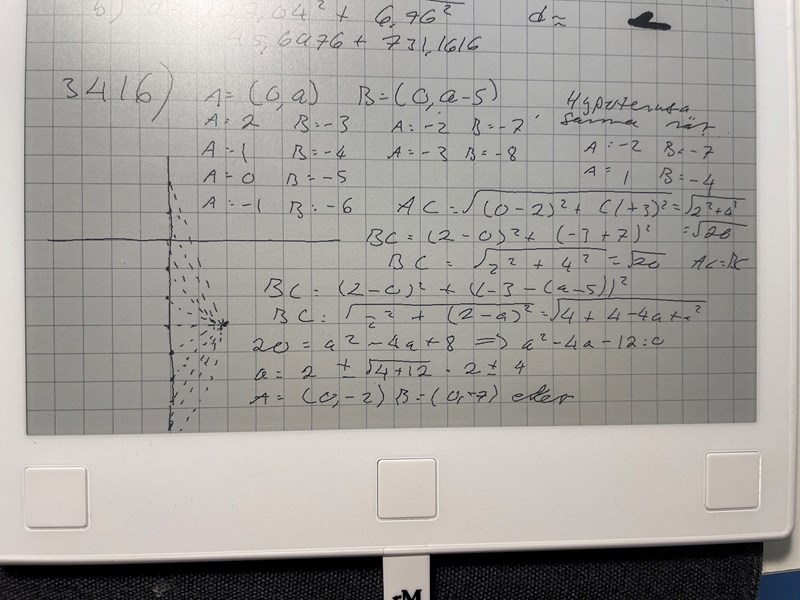 b) d= 27,04² + 6,76² d≈
45,6976 + 731,1616
3416) A= (0,a) B=(0,a-5)
Hypotenusa
samma när
A=2 B=-3 A=-2 B=-7
A=-2 B=-7
A=1 B=-4 A=-3 B=-8
A=1 B=-4
A=0 B=-5
A=-1 B=-6 AC=√(0-2)²+(1+3)²=√2²+4²
BC=(2-0)²+(-3+7)² =√20
BC=√2²+4²=√20 AC=BC
BC=(2-0)²+(-3-(a-5))²
BC=√2²+(2-a)²=√4+4-4a+a²
20=a²-4a+8 => a²-4a-12=0
a=2±√4+12=2±4
A=(0,-2) B=(0,-7) eller
M